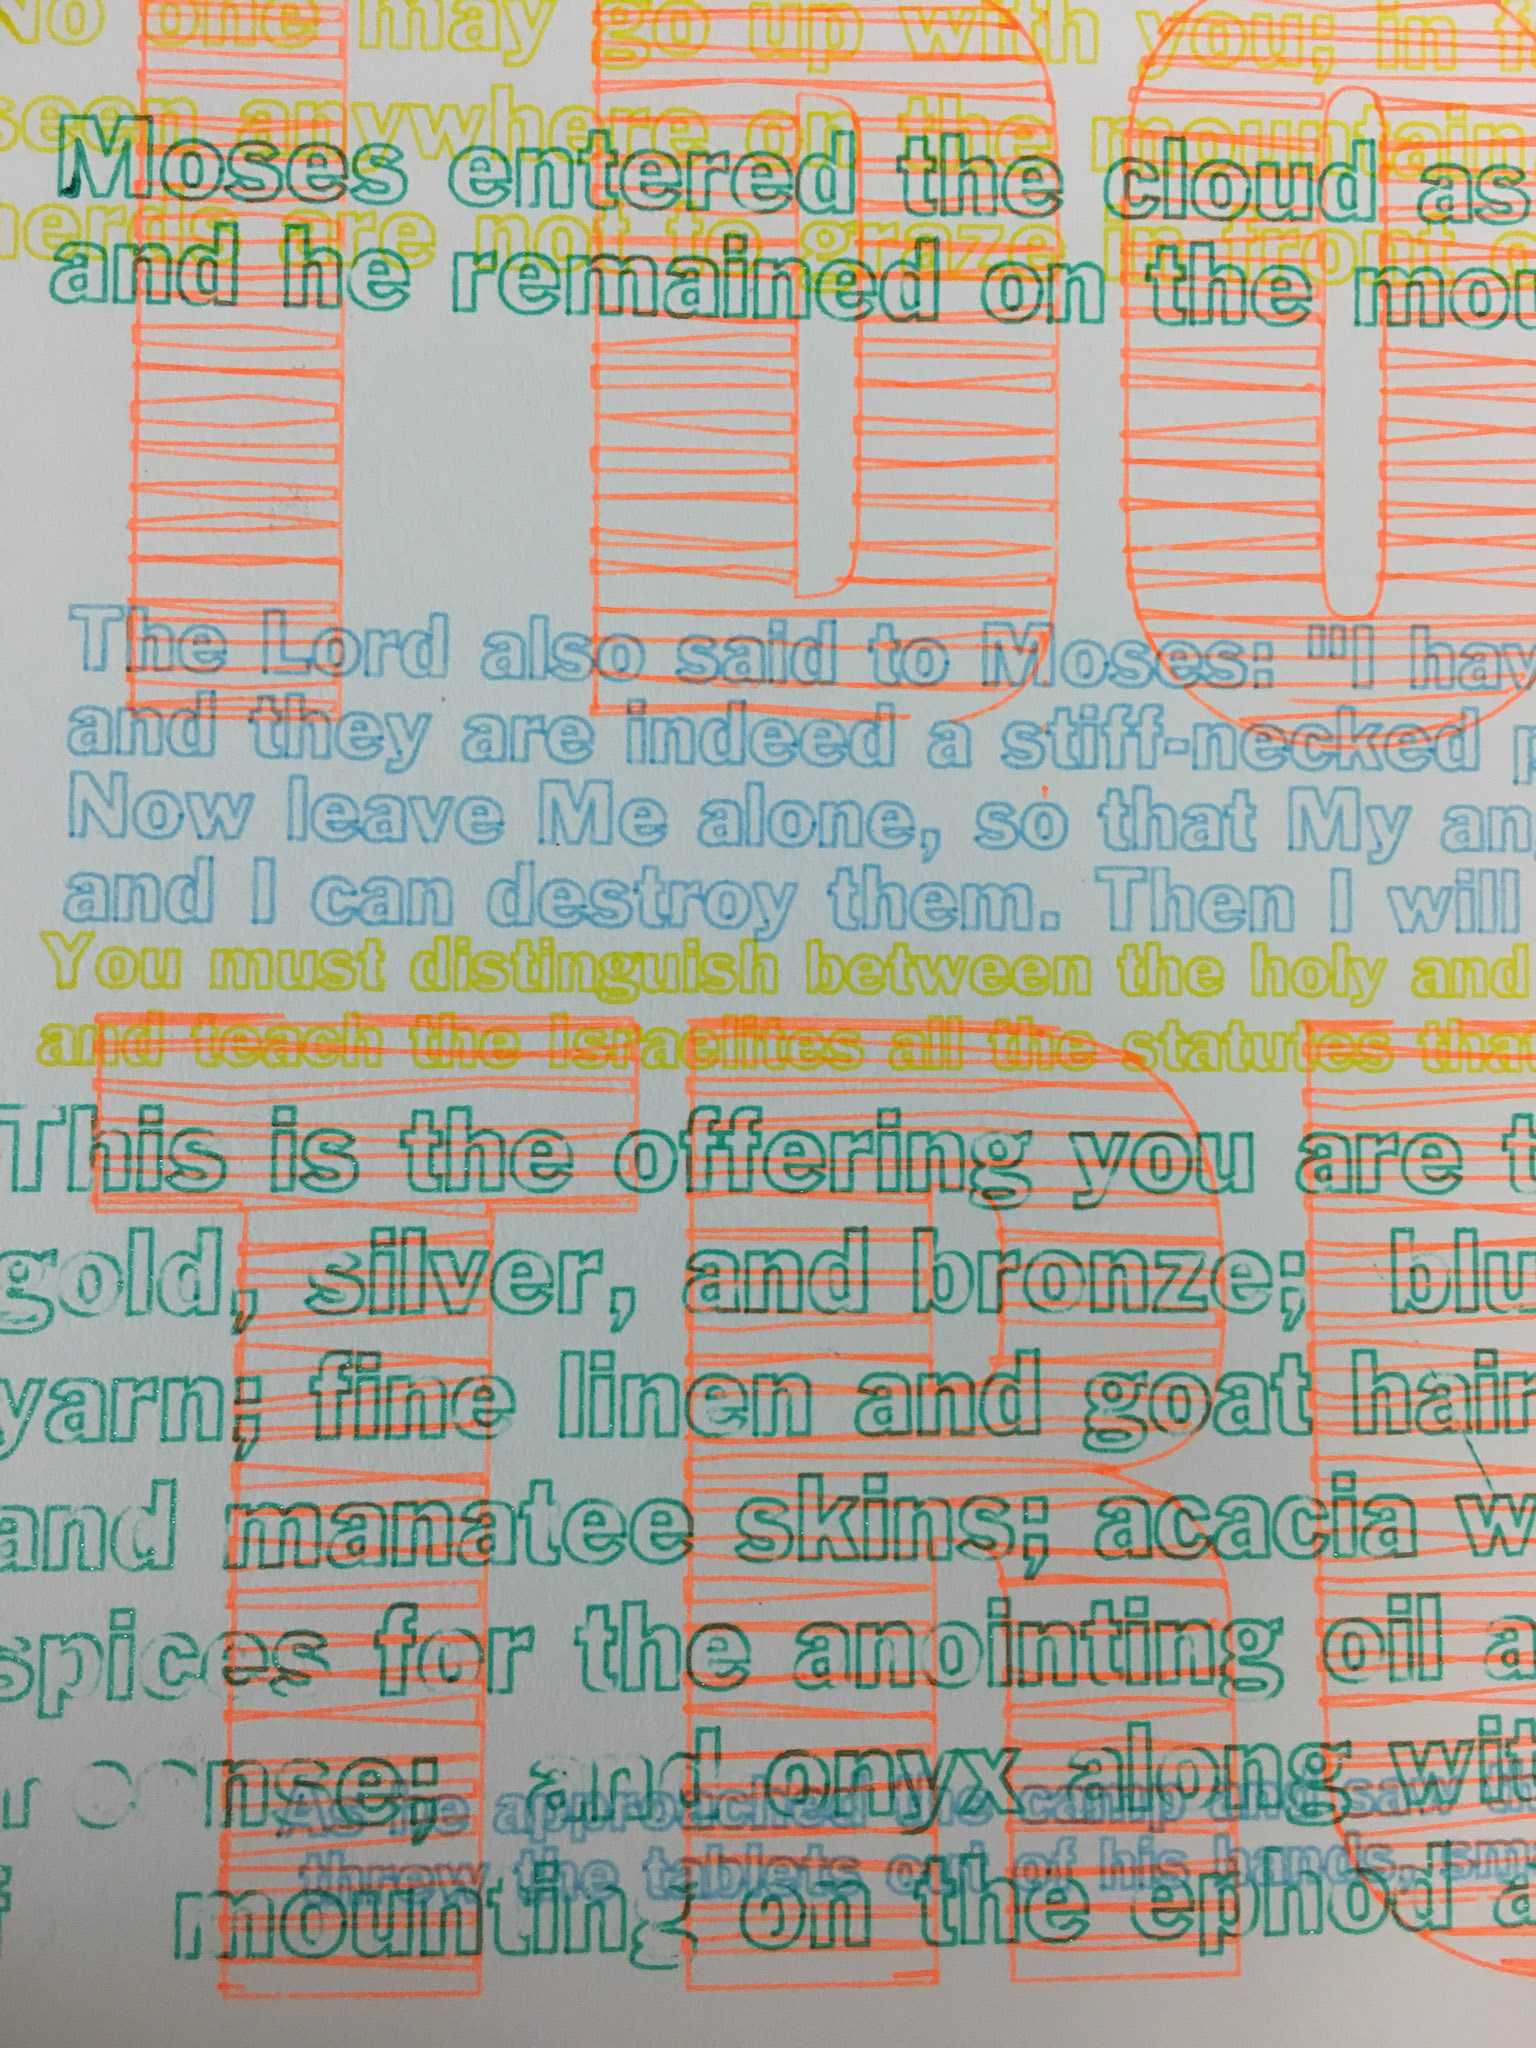 No one may go up with you; in
seen anywhere on the mountain
Moses entered the cloud as
herds are not to graze in front
and he remained on the
The Lord also said to Moses: "I
and they are indeed a stiff-necked
Now leave Me alone, so that My
and I can destroy them. Then I will
You must distinguish between the holy and
and teach the Israelites all the statutes that
This is the offering you are
gold, silver, and bronze; 
yarn; fine linen and goat hair
and manatee skins; acacia
spices for the anointing oil
and onyx along
As he approached the camp and saw
threw the tablets out of his hands,
mounting on the ephod